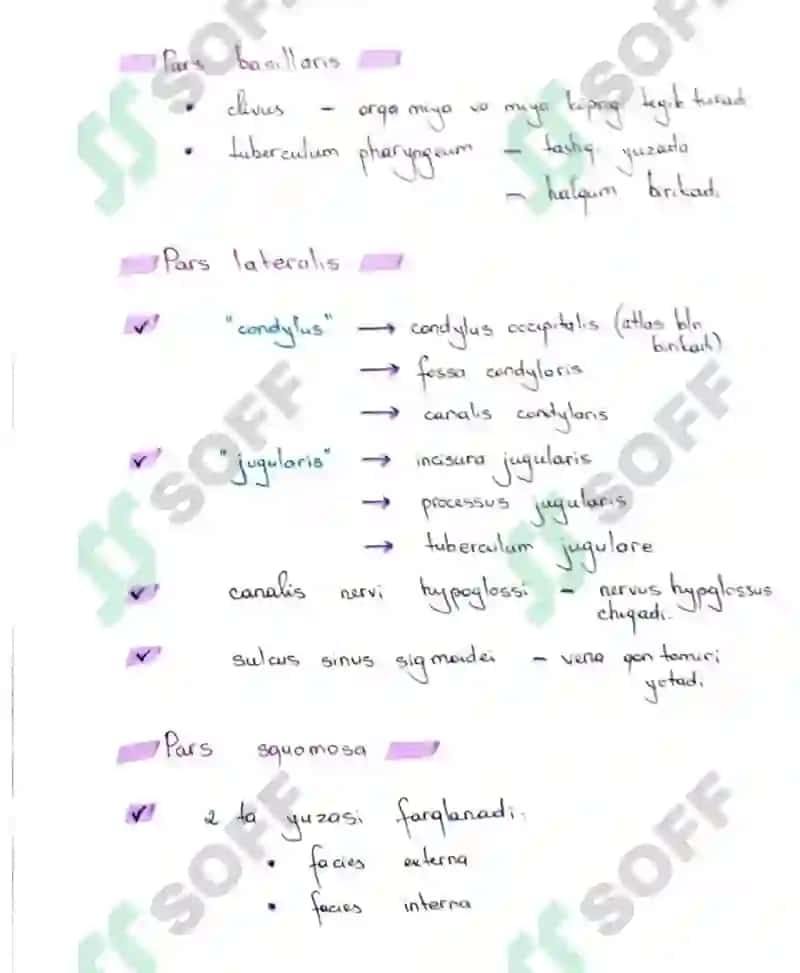 Pars basillaris
• clivus – orqa miya va miya ko'prig tegib turadi
• tuberculum pharyngeum – tashqi yuzada
– halqum birikadi.
Pars lateralis
✓ "condylus" → condylus occipitalis (atlas bln
birikadi)
→ fossa condylaris
→ canalis condylaris
✓ "jugularis" → incisura jugularis
→ processus jugularis
→ tuberculum jugulare
✓ canalis nervi hypoglossi – nervus hypglossus
chiqadi.
✓ sulcus sinus sigmoidei – vena qon tomiri
yotadi.
Pars squamosa
✓ 2 ta yuzasi farqlanadi.
• facies externa
• facies interna
SOFF
SOFF
SOFF
SOFF
SOFF
SOFF